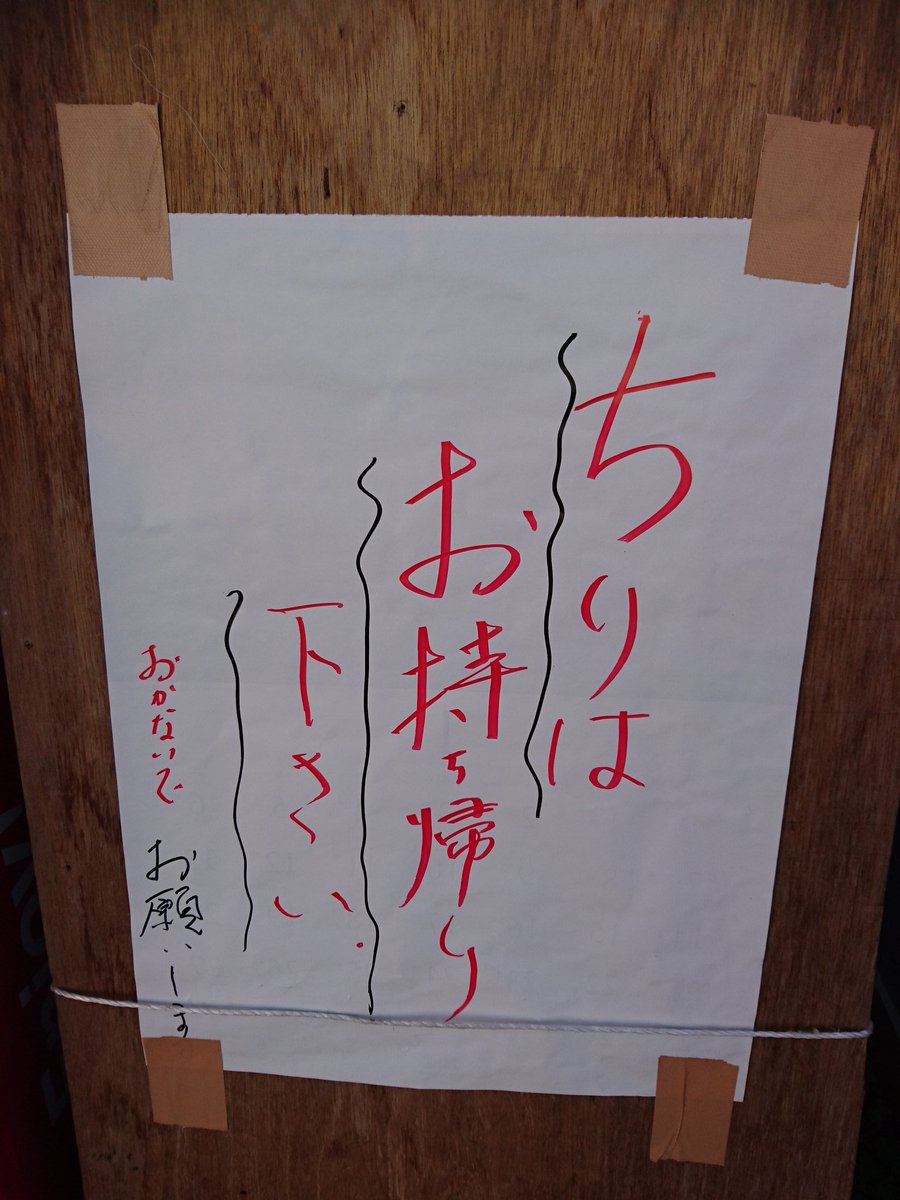 ちりは
お持ち帰り
下さい.
おかないで お願いします